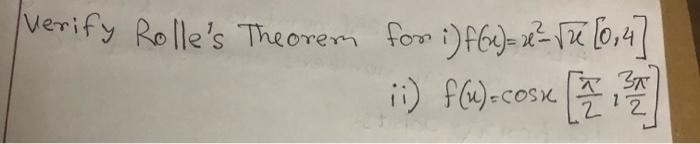 Verify Rolle's Theorem for i) f(x)=x²-√x [0,4]
ii) f(x)=cosx [π/2, 3π/2]